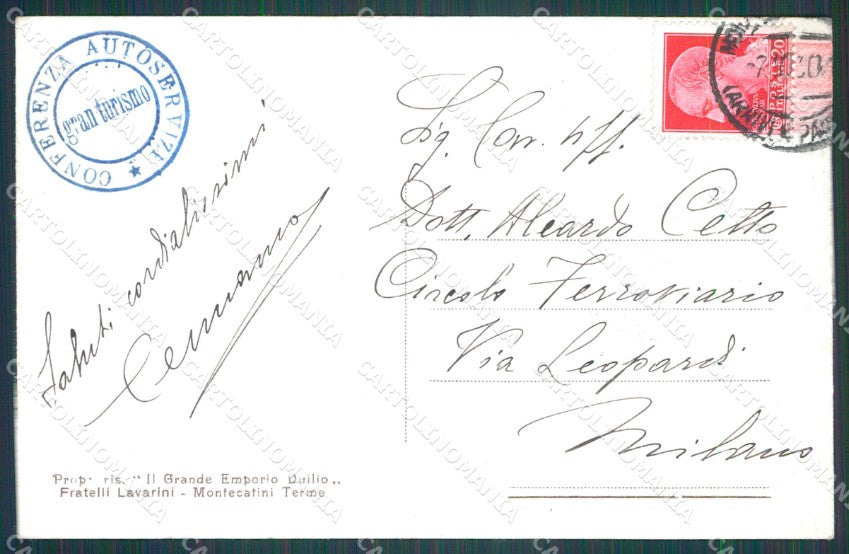 CONFERENZA AUTOSERVIZI
gran turismo
Saluti cordialissimi
Sig. Cav. Uff.
Dott. Aleardo Cetto
Circolo Ferroviario
Via Leopardi
Milano
"Il Grande Emporio Duilio"
Fratelli Lavarini - Montecatini Terme
CARTOLINOMANIA